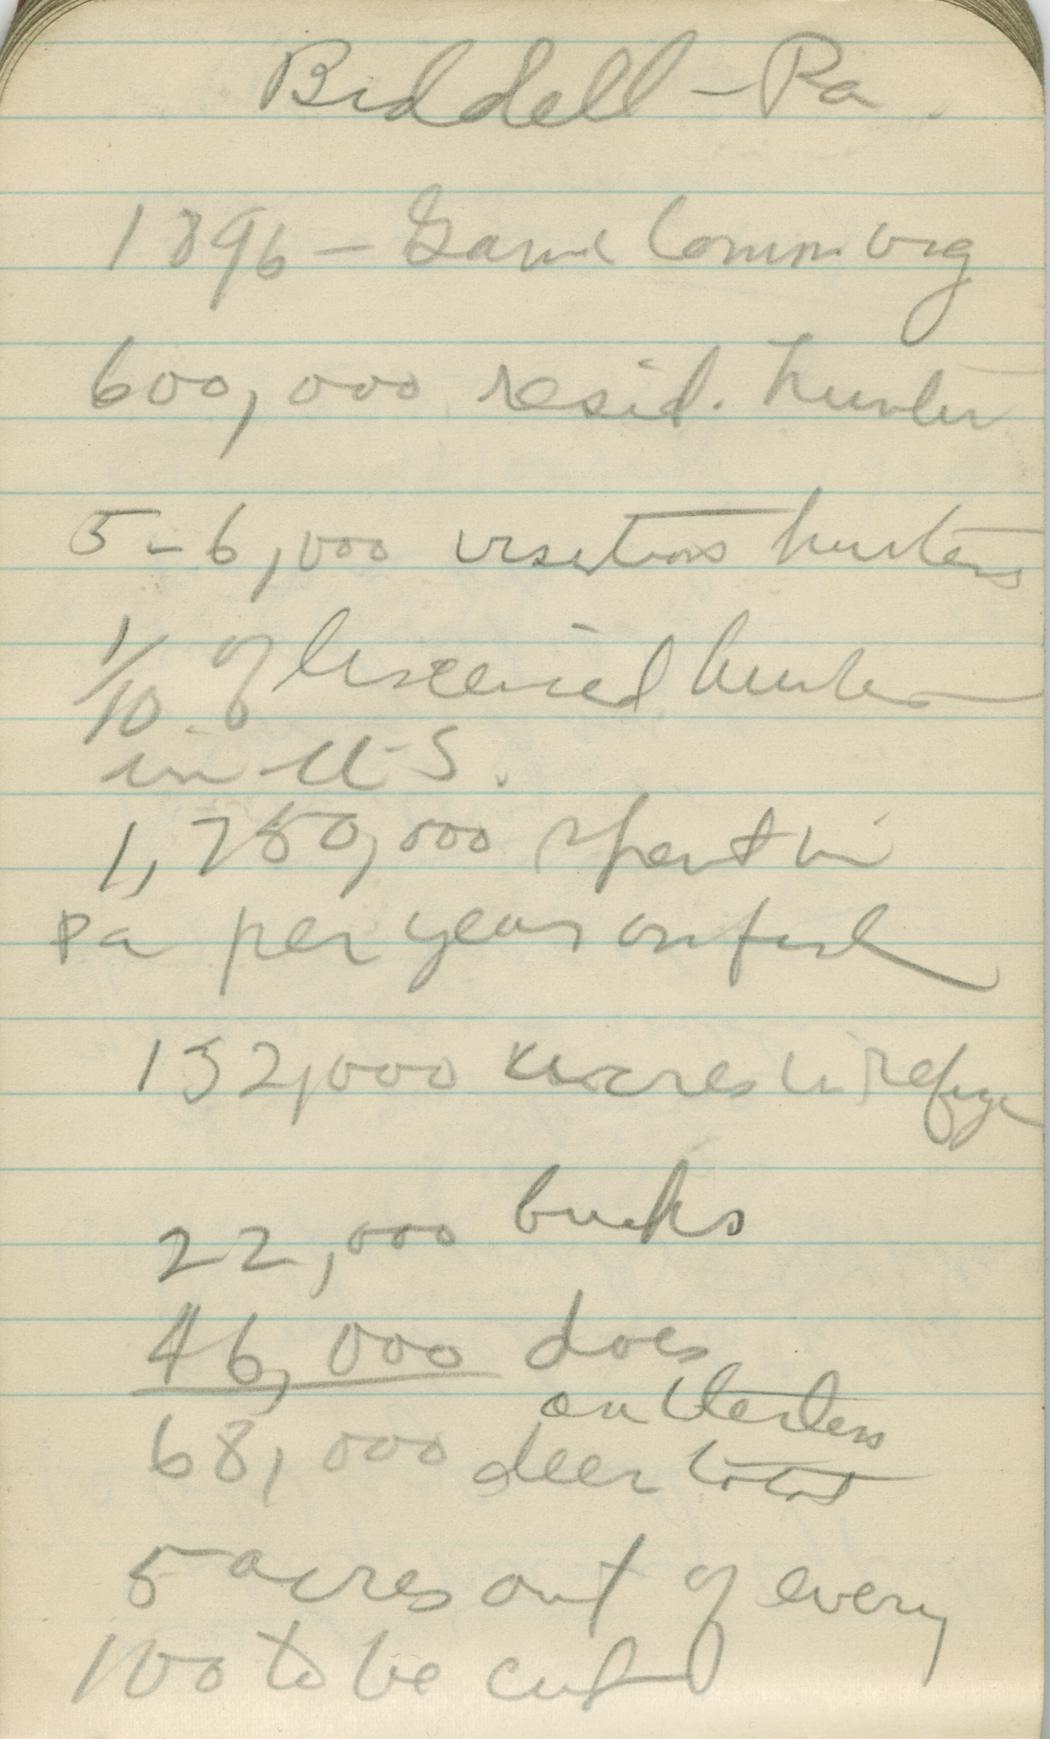 Biddell - Pa.
1896 - Game Comm. org
600,000 resid. hunter
5-6,000 visitors hunters
1/10 of liscensed hunters
in U-S.
1,750,000 spent in
Pa per year on
132,000 acres in refuge
22,000 bucks
46,000 does
antlerless
68,000 deer total
5 acres out of every
100 to be cut